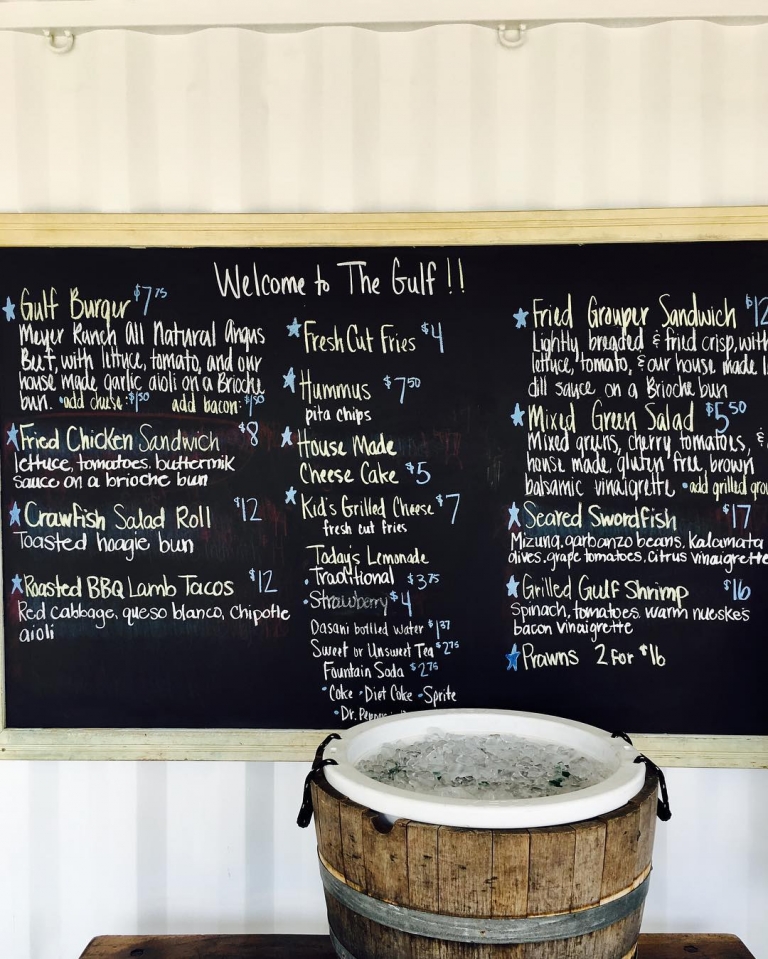 Welcome to The Gulf!!
Gulf Burger $7.75
Meyer Ranch All Natural Angus
Beef, with lettuce, tomato, and our
house made garlic aioli on a Brioche
bun. •add cheese: $1.50 add bacon: $1.50
Fried Chicken Sandwich $8
lettuce, tomatoes, buttermik
sauce on a brioche bun
Crawfish Salad Roll $12
Toasted hoagie bun
Roasted BBQ Lamb Tacos $12
Red cabbage, queso blanco, Chipotle
aioli
Fresh Cut Fries $4
Hummus $7.50
pita chips
House Made
Cheese Cake $5
Kid's Grilled Cheese $7
fresh cut fries
Today's Lemonade
•Traditional $3.75
•Strawberry $4
Dasani bottled water $1.37
Sweet or Unsweet Tea $2.75
Fountain Soda $2.75
•Coke •Diet Coke •Sprite
•Dr. Pepper
Fried Grouper Sandwich $12
Lightly breaded & fried crisp, with
lettuce, tomato, & our house made
dill sauce on a Brioche bun
Mixed Green Salad $5.50
Mixed greens, cherry tomatoes, &
house made, gluten free, brown
balsamic vinaigrette •add grilled
Seared Swordfish $17
Mizuna, garbanzo beans, Kalamata
olives, grape tomatoes, citrus vinaigrette
Grilled Gulf Shrimp $16
Spinach, tomatoes, warm nueske's
bacon vinaigrette
Prawns 2 for $16